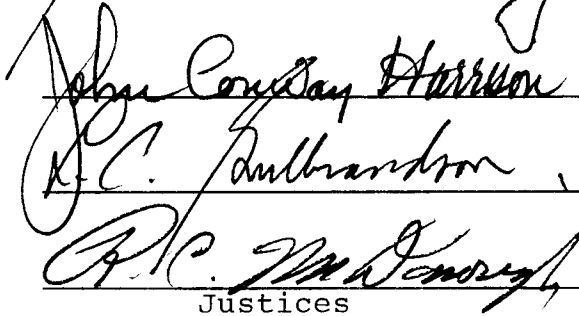 John Conway Harrison
L. C. Gulbrandson
R. C. McDonough
Justices